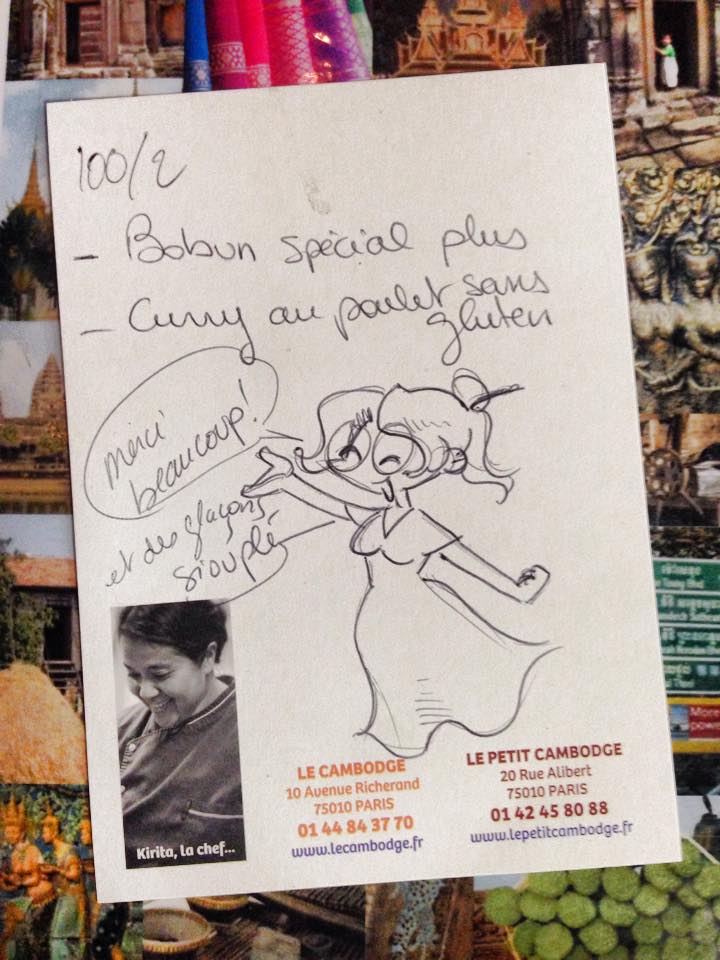 100/2
- Bobun spécial plus
- Curry au poulet sans
gluten
merci
beaucoup!
et des glaçons
siouplé
Kirita, la chef...
LE CAMBODGE
10 Avenue Richerand
75010 PARIS
01 44 84 37 70
www.lecambodge.fr
LE PETIT CAMBODGE
20 Rue Alibert
75010 PARIS
01 42 45 80 88
www.lepetitcambodge.fr
More